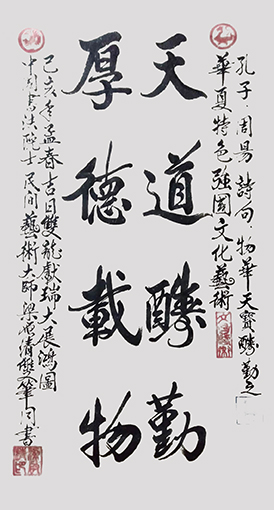 孔子·周易詩句·物華天寶酬勤之
華夏特色強國文化藝術
天道酬勤
厚德載物
己亥年孟春吉日雙龍獻瑞大展鴻圖
中國書法院士民间藝術大師梁
雙筆同書